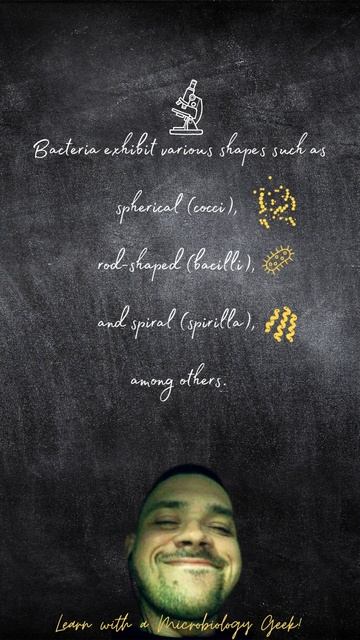 Bacteria exhibit various shapes such as
spherical (cocci),
rod-shaped (bacilli),
and spiral (spirilla),
among others.
Learn with a Microbiology Geek!